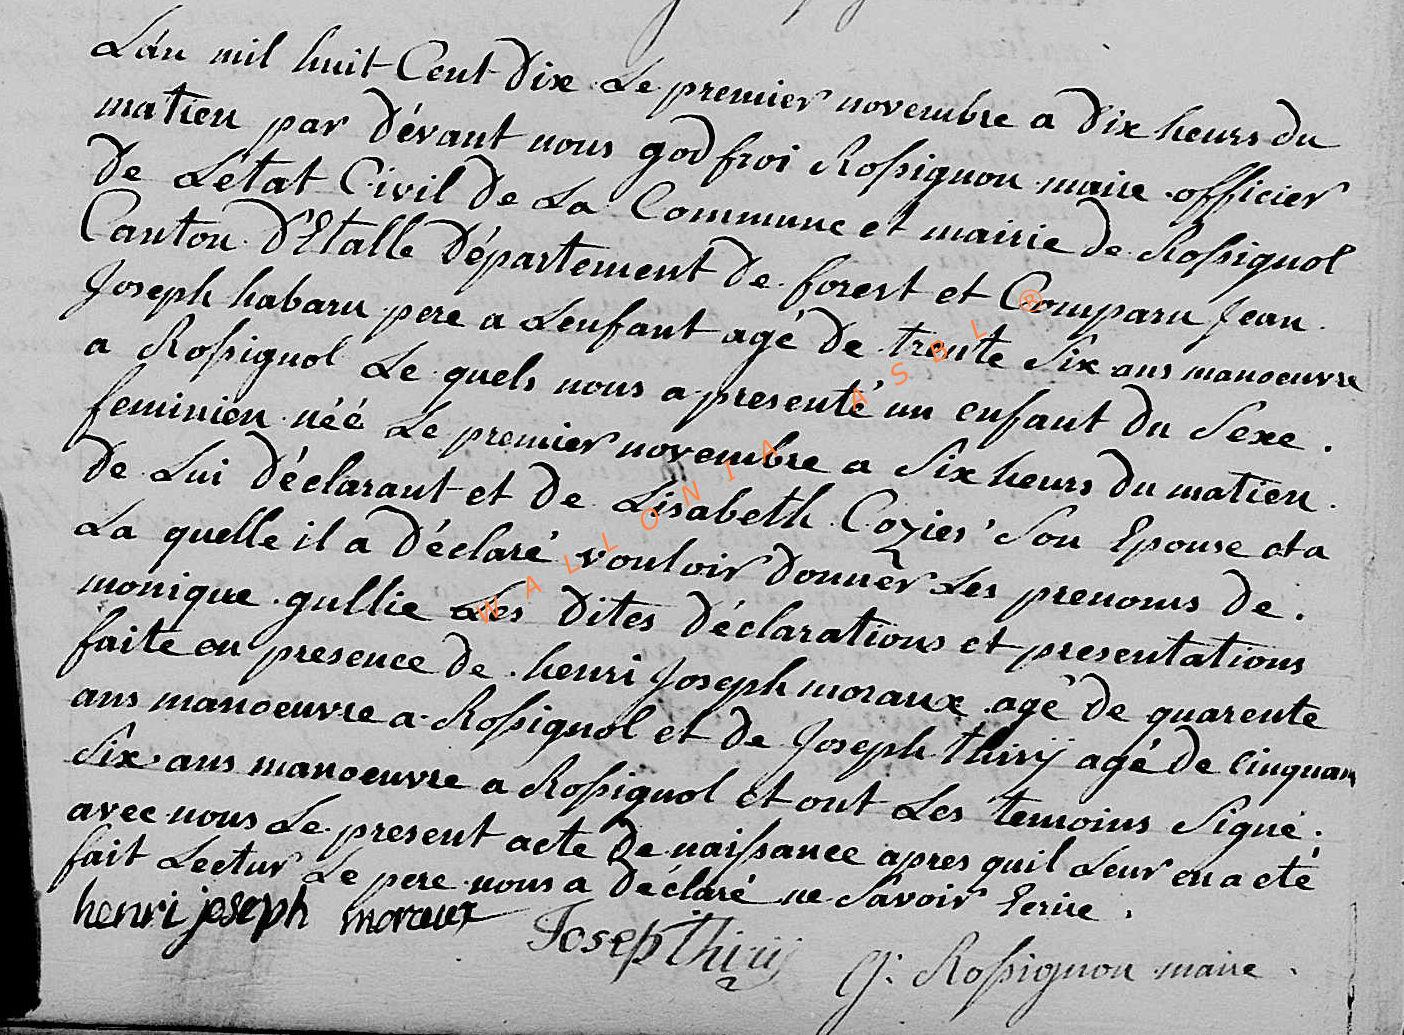 L'an mil huit Cent Dix Le premier novembre a Dix heurs du
matien par dévant nous godfroi Rossignon maire officier
De L'état Civil de La Commune et mairie de Rossignol
Canton D'Etalle Département De forest et Comparu Jean
Joseph habaru pere a Lenfant agé de trente Six ans manoeuvre
a Rossignol Le quels nous a presenté un enfant du Sexe.
feminien néé Le premier novembre a Six heurs Du matien.
de Lui Déclarant et De Lisabeth Cozier Son Epouse et a
La quelle il a Déclaré vouloir Donner Les prenoms De.
monique gullie Les Dites Déclarations et presentations
faite en presence De henri Joseph moraux agé De quarente
ans manoeuvre a Rossignol et De Joseph thirÿ agé De Cinquan
Six ans manoeuvre a Rossignol et ont Les temoins Signé.
avec nous Le present acte De naissance apres quil Leur en a eté
fait Lectur Le pere nous a Déclaré ne Savoir Ecrire.
henri joseph moraux Josep thiry G: Rossignon maire.
WALLONIA ASBL ®